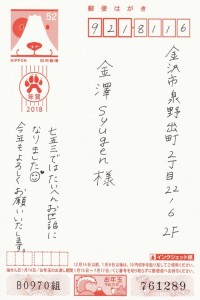 郵便はがき
52
NIPPON
日本郵便
年賀
2018
9218116
金沢市泉野出町2丁目22,6 2F
金澤Syugen 様
七五三ではたいへんお世話に
なりました
今年もよろしく
お願いいたします。
インクジェット紙
お年玉
B0970組
761289